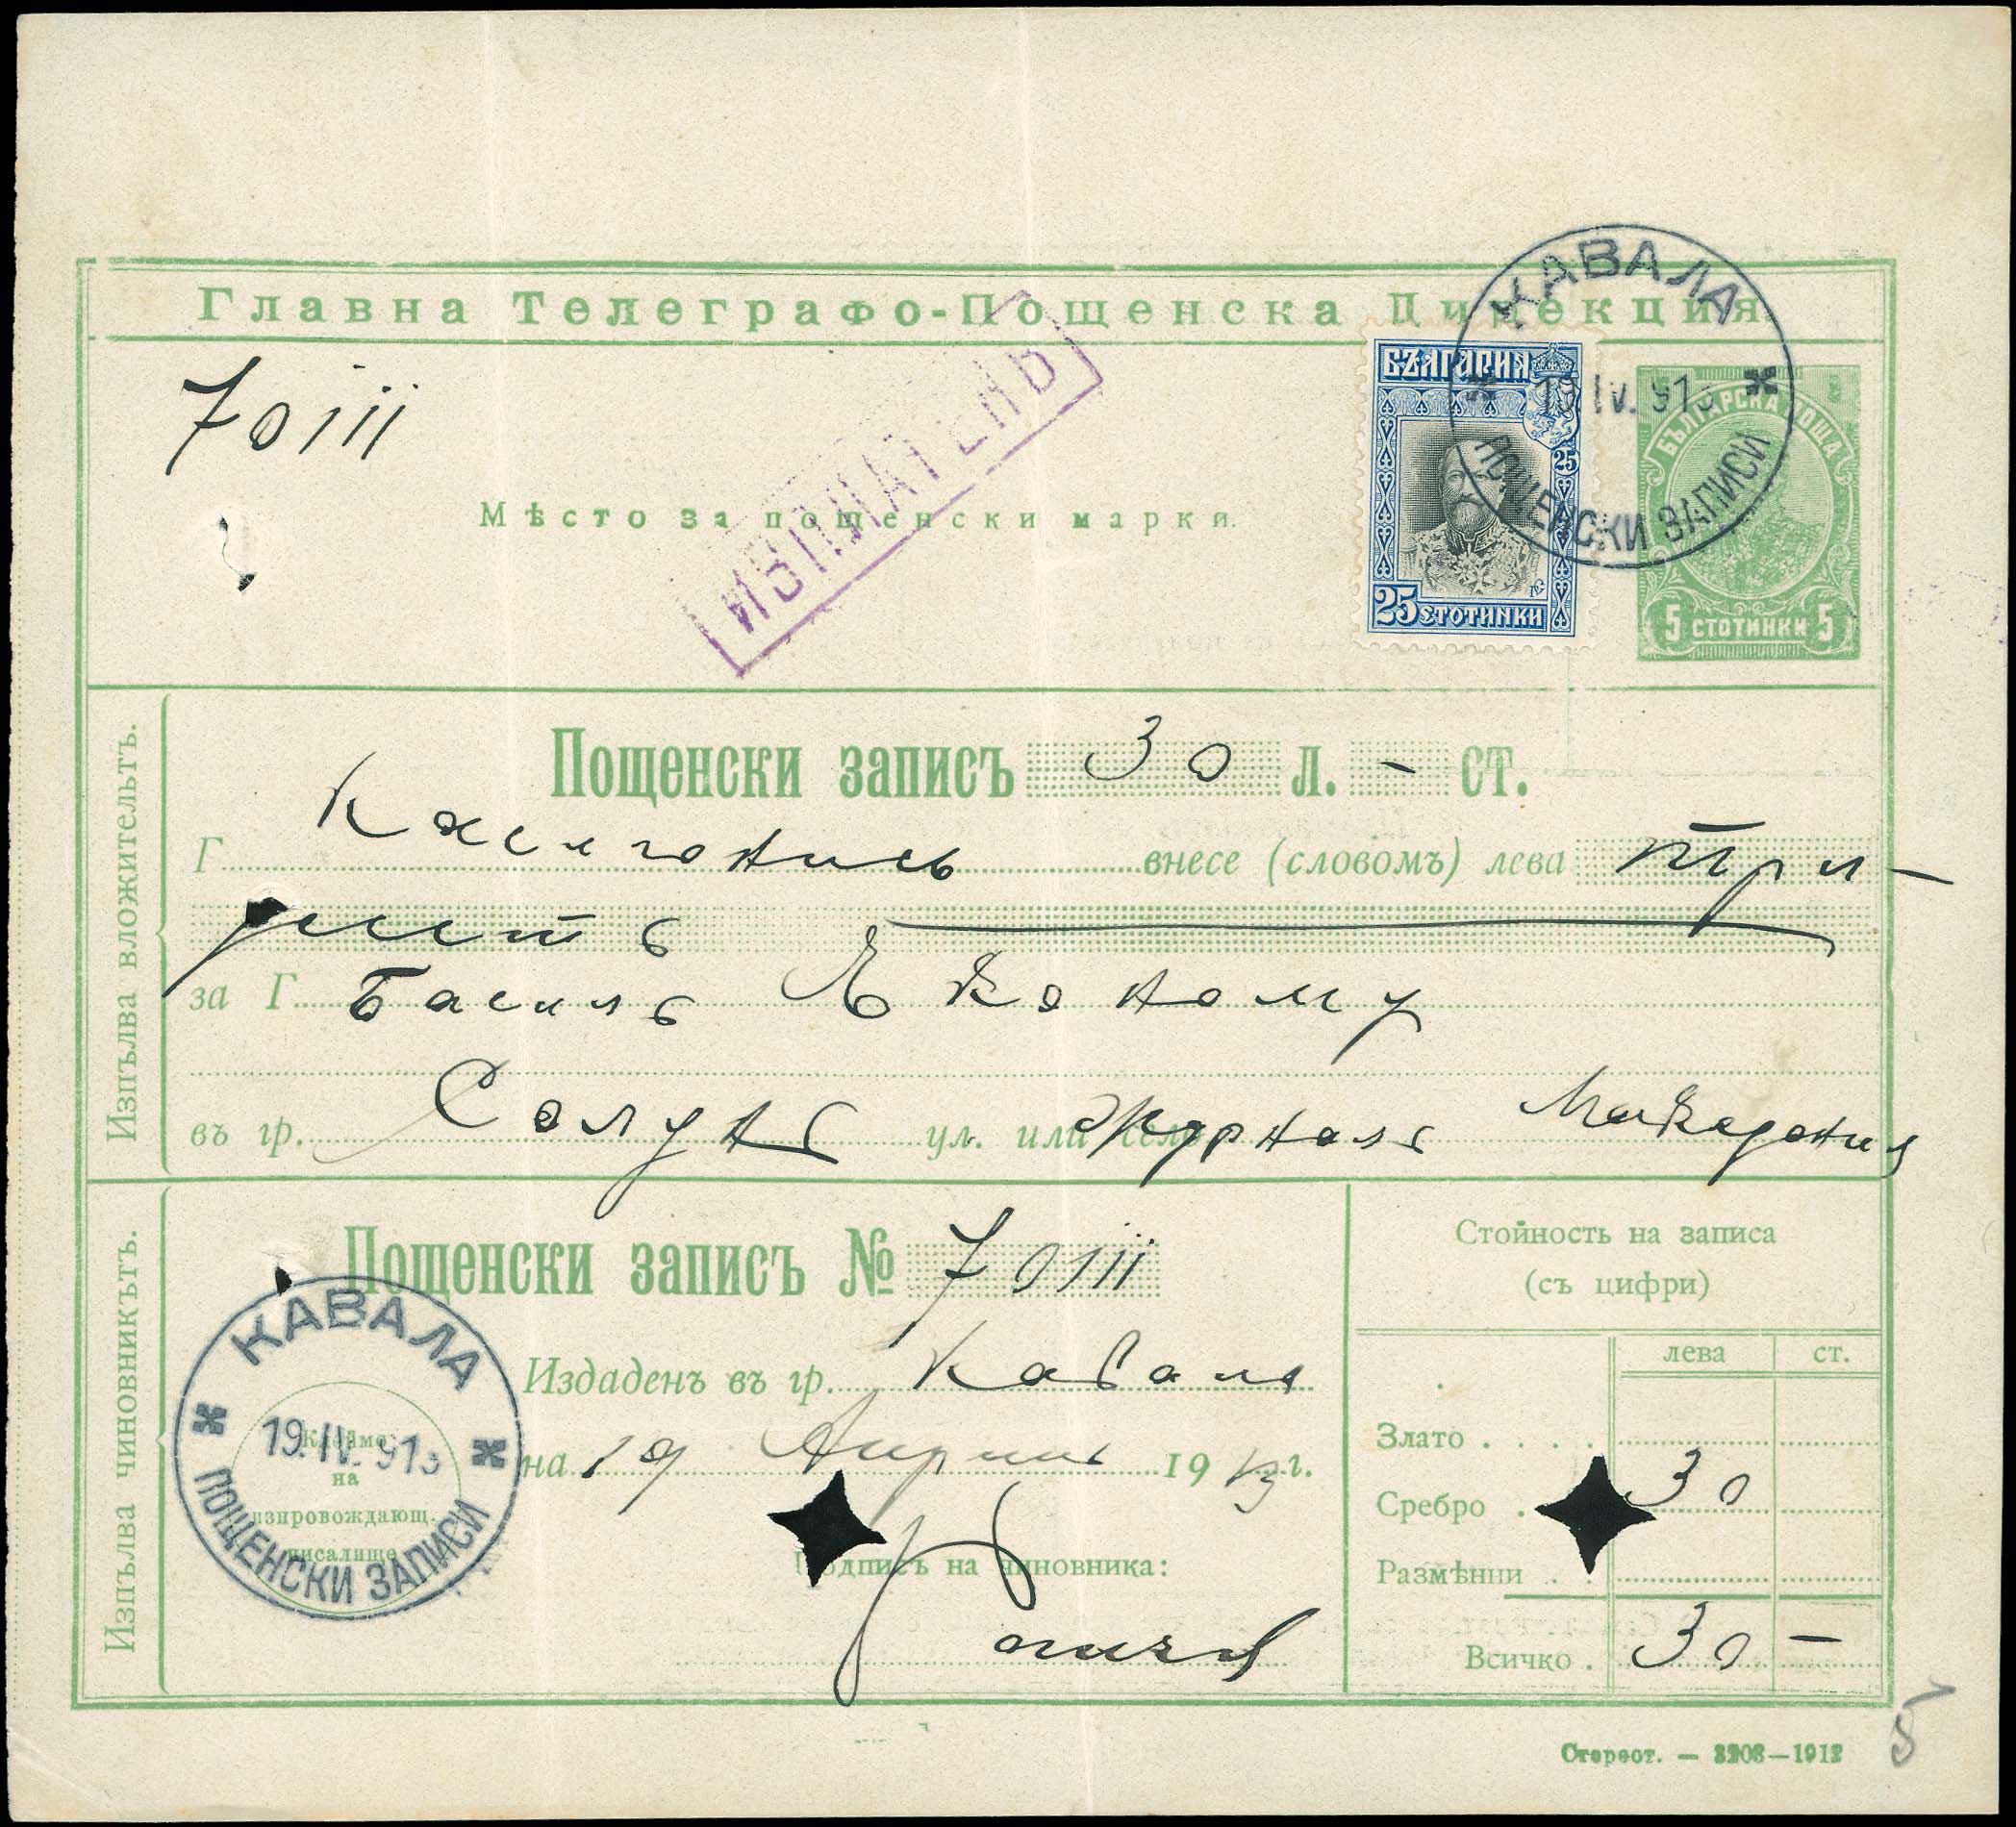 Главна Телеграфо-Пощенска Дирекция
КАВАЛА
19.IV.913
ПОЩЕНСКИ ЗАПИСИ
70111
БЪЛГАРИЯ
25
25 СТОТИНКИ
БЪЛГАРСКА ПОЩА
5 СТОТИНКИ 5
Мѣсто за пощенски марки.
ИЗПЛАТЕНЪ
Изпълва вложительтъ.
Пощенски записъ 30 Л. - СТ.
Г. внесе (словомъ) лева три-
десеть
за Г. Василъ Економу
въ гр. Солунъ ул. или село Журналъ Македония
Изпълва чиновникътъ.
Пощенски записъ № 70111
Издаденъ въ гр. Кавала
на 19 Априлъ 1913 г.
Подписъ на чиновника:
КАВАЛА
19.IV.913
ПОЩЕНСКИ ЗАПИСИ
Клеймо
на
изпровождающ.
писалище
Стойность на записа
(съ цифри)
лева ст.
Злато . . . .
Сребро . 30
Размѣнни . .
Всичко . 30 -
Стереот. —
5